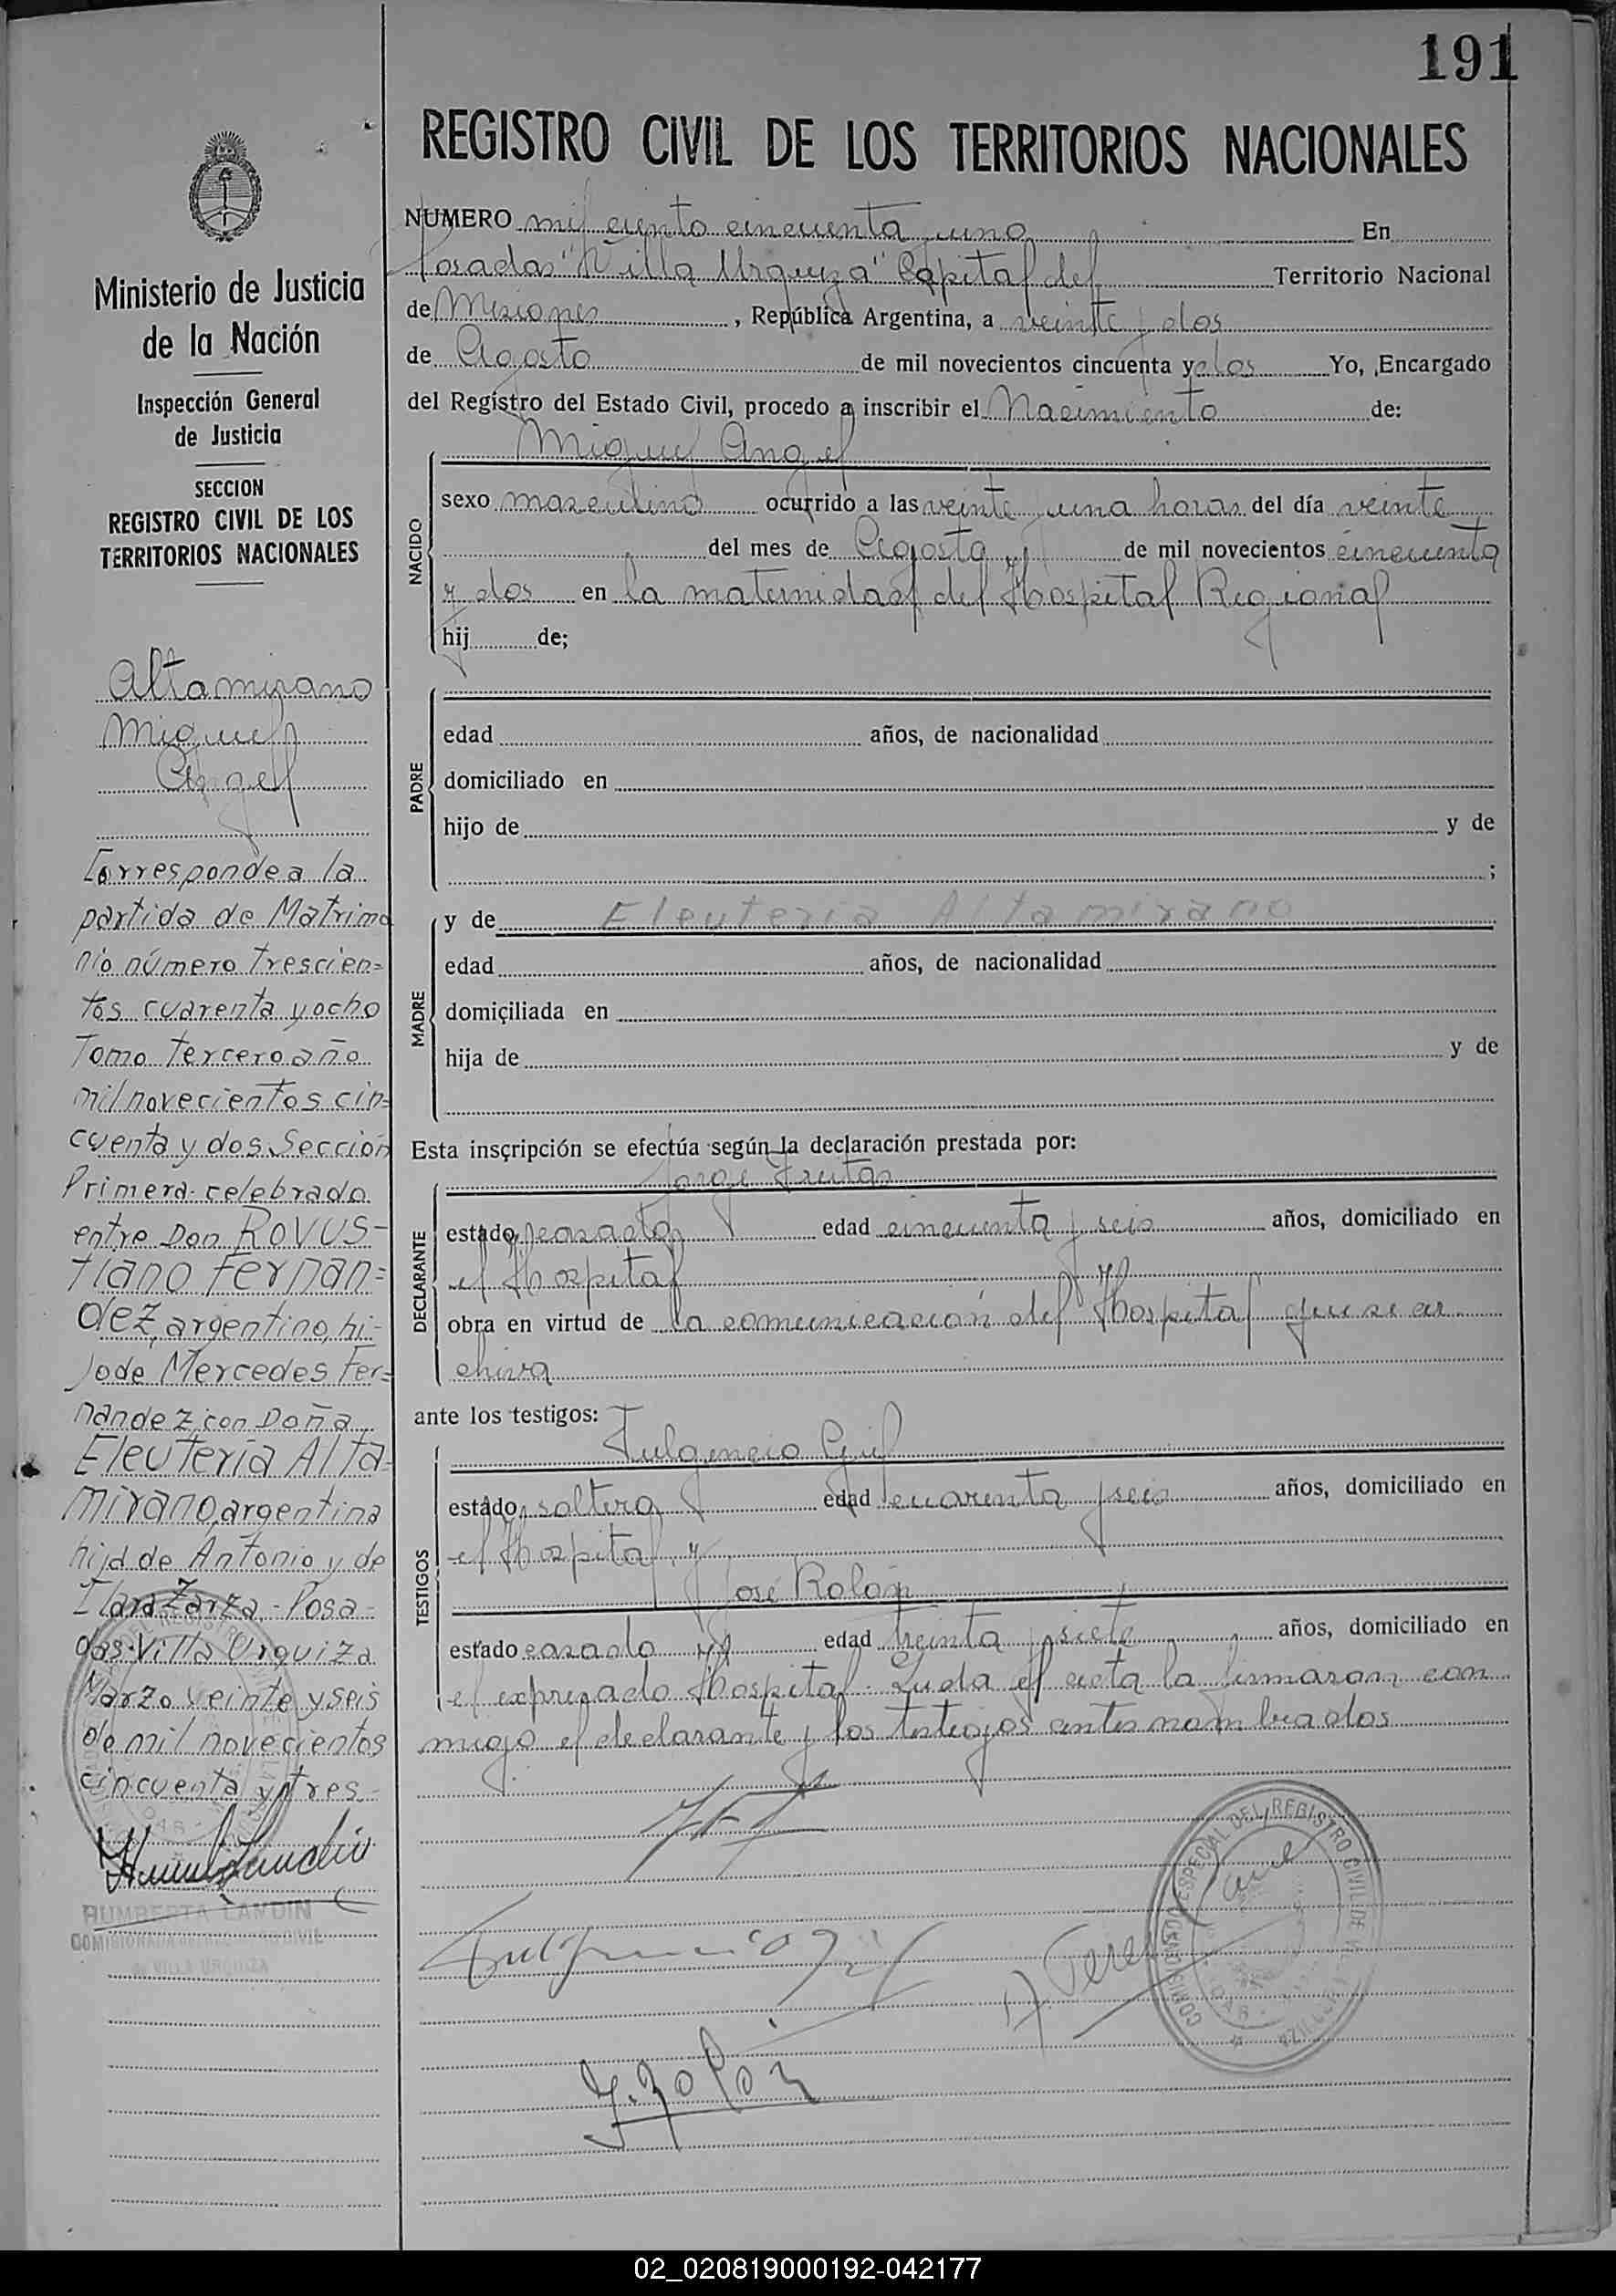 191
REGISTRO CIVIL DE LOS TERRITORIOS NACIONALES
Ministerio de Justicia
de la Nación
Inspección General
de Justicia
SECCION
REGISTRO CIVIL DE LOS
TERRITORIOS NACIONALES
Altamirano
Miguel
Angel
Corresponde a la
partida de Matrimo
nio número trescien=
tos cuarenta y ocho
Tomo tercero año
mil novecientos cin=
cuenta y dos Sección
Primera celebrado
entre Don ROVUS-
tiano Fernan=
dez, argentino, hi-
jo de Mercedes Fer=
nandez, con Doña
Eleuteria Alta-
mirano, argentina
hija de Antonio y de
Zarza - Posa-
das. Villa Urquiza
Marzo veinte y seis
de mil novecientos
cincuenta y tres-
HUMBERTA LANDIN
VILLA URQUIZA
NUMERO mil ciento cincuenta y uno En
Posadas "Villa Urquiza" Capital del Territorio Nacional
de Misiones , República Argentina, a veinte y dos
de Agosto de mil novecientos cincuenta y dos Yo, Encargado
del Registro del Estado Civil, procedo a inscribir el Nacimiento de:
Miguel Angel
NACIDO
sexo masculino ocurrido a las veinte y una horas del día veinte
del mes de Agosto de mil novecientos cincuenta
y dos en la maternidad del Hospital Regional
hij de;
PADRE
edad años, de nacionalidad
domiciliado en
hijo de y de
;
MADRE
y de Eleuteria Altamirano
edad años, de nacionalidad
domiciliada en
hija de y de
Esta inscripción se efectúa según la declaración prestada por:
Jorge Freitas
DECLARANTE
estado casado edad cincuenta y seis años, domiciliado en
el Hospital
obra en virtud de la comunicación del Hospital que se ar
chiva
ante los testigos:
Fulgencio Gil
TESTIGOS
estado soltero edad cuarenta y seis años, domiciliado en
el Hospital y
José Rolón
estado casado edad treinta y siete años, domiciliado en
el expresado Hospital. Leida el acta la firmaron con
migo el declarante y los testigos antes nombrados
Fulgencio Gil
J. Rolón
02_020819000192-042177